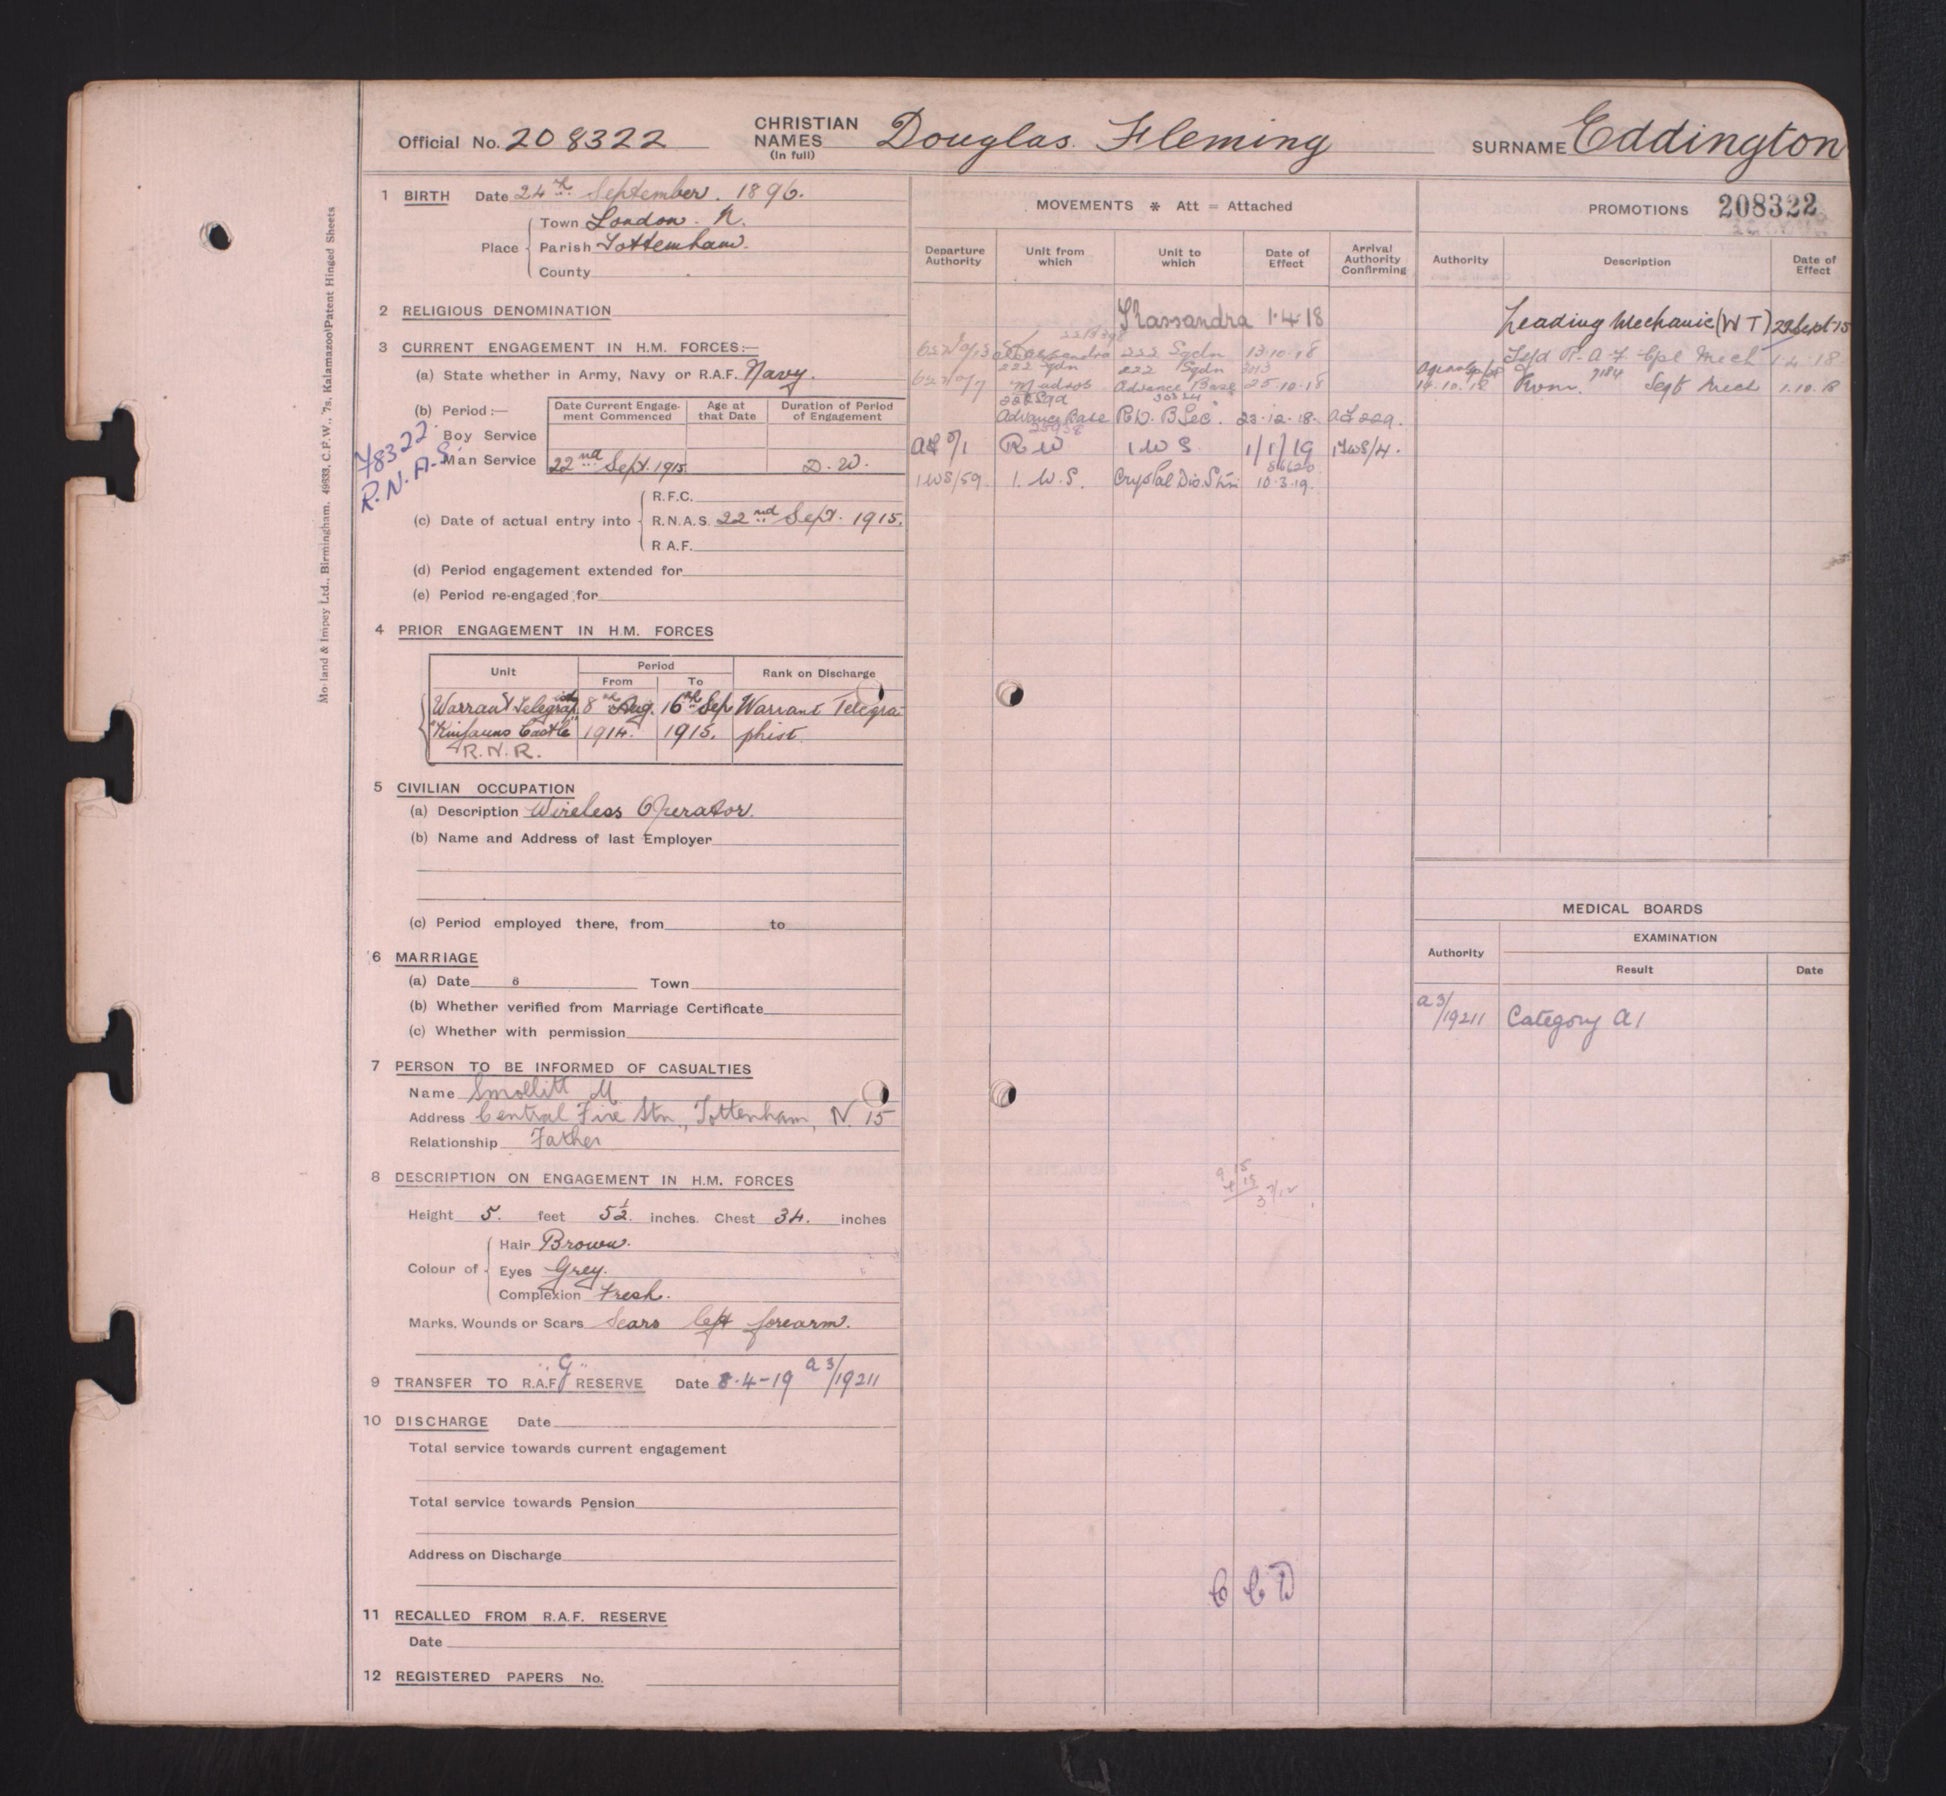 Official No. 208322 CHRISTIAN NAMES (In full) Douglas. Fleming SURNAME Eddington
1 BIRTH Date 24th September. 1896.
Place Town London. N.
Parish Tottenham.
County
2 RELIGIOUS DENOMINATION
3 CURRENT ENGAGEMENT IN H.M. FORCES:—
(a) State whether in Army, Navy or R.A.F. Navy.
(b) Period:—
Date Current Engagement Commenced Age at that Date Duration of Period of Engagement
Boy Service
Man Service 22nd Sept. 1915 D.W.
78322.
R.N.A.S.
(c) Date of actual entry into R.F.C.
R.N.A.S. 22nd Sept. 1915.
R A.F.
(d) Period engagement extended for
(e) Period re-engaged for
4 PRIOR ENGAGEMENT IN H.M. FORCES
Unit Period Rank on Discharge
From To
Warrant Telegraphist 8th Aug. 16th Sep Warrant Telegra
"Kinfauns Castle" 1914. 1915. phist.
R.N.R.
5 CIVILIAN OCCUPATION
(a) Description Wireless Operator.
(b) Name and Address of last Employer
(c) Period employed there, from to
6 MARRIAGE
(a) Date Town
(b) Whether verified from Marriage Certificate
(c) Whether with permission
7 PERSON TO BE INFORMED OF CASUALTIES
Name Smollitt M.
Address Central Fire Stn., Tottenham, N. 15
Relationship Father
8 DESCRIPTION ON ENGAGEMENT IN H.M. FORCES
Height 5. feet 5½. inches. Chest 34. inches
Colour of Hair Brown.
Eyes Grey.
Complexion Fresh.
Marks, Wounds or Scars Scars left forearm.
"G"
9 TRANSFER TO R.A.F. RESERVE Date 8.4-19 a3/19211
10 DISCHARGE Date
Total service towards current engagement
Total service towards Pension
Address on Discharge
11 RECALLED FROM R.A.F. RESERVE
Date
12 REGISTERED PAPERS No.
Morland & Impey Ltd., Birmingham. 49933, C.F.W., '7s, Kalamazoo Patent Hinged Sheets
MOVEMENTS * Att = Attached
Departure Authority Unit from which Unit to which Date of Effect Arrival Authority Confirming
Thassandra 1.4.18
222 Sqdn 13.10.18
222 Sqdn 222 Sqdn
Mudros Advance Base 25.10.18
Advance Base R.W. B Sec. 23.12.18.
R W 1 W S 1/1/19 1WS/4.
1WS/59. 1. W. S. Crystal Dis. Stn 10.3.19.
PROMOTIONS 208322
Authority Description Date of Effect
Leading Mechanic (W T) 22 Sept 15
Tsfd R.A.F. Cpl Mech 1.4.18
14.10.18 Sgt Mech 1.10.18
MEDICAL BOARDS
Authority EXAMINATION
Result Date
a3/19211 Category A1